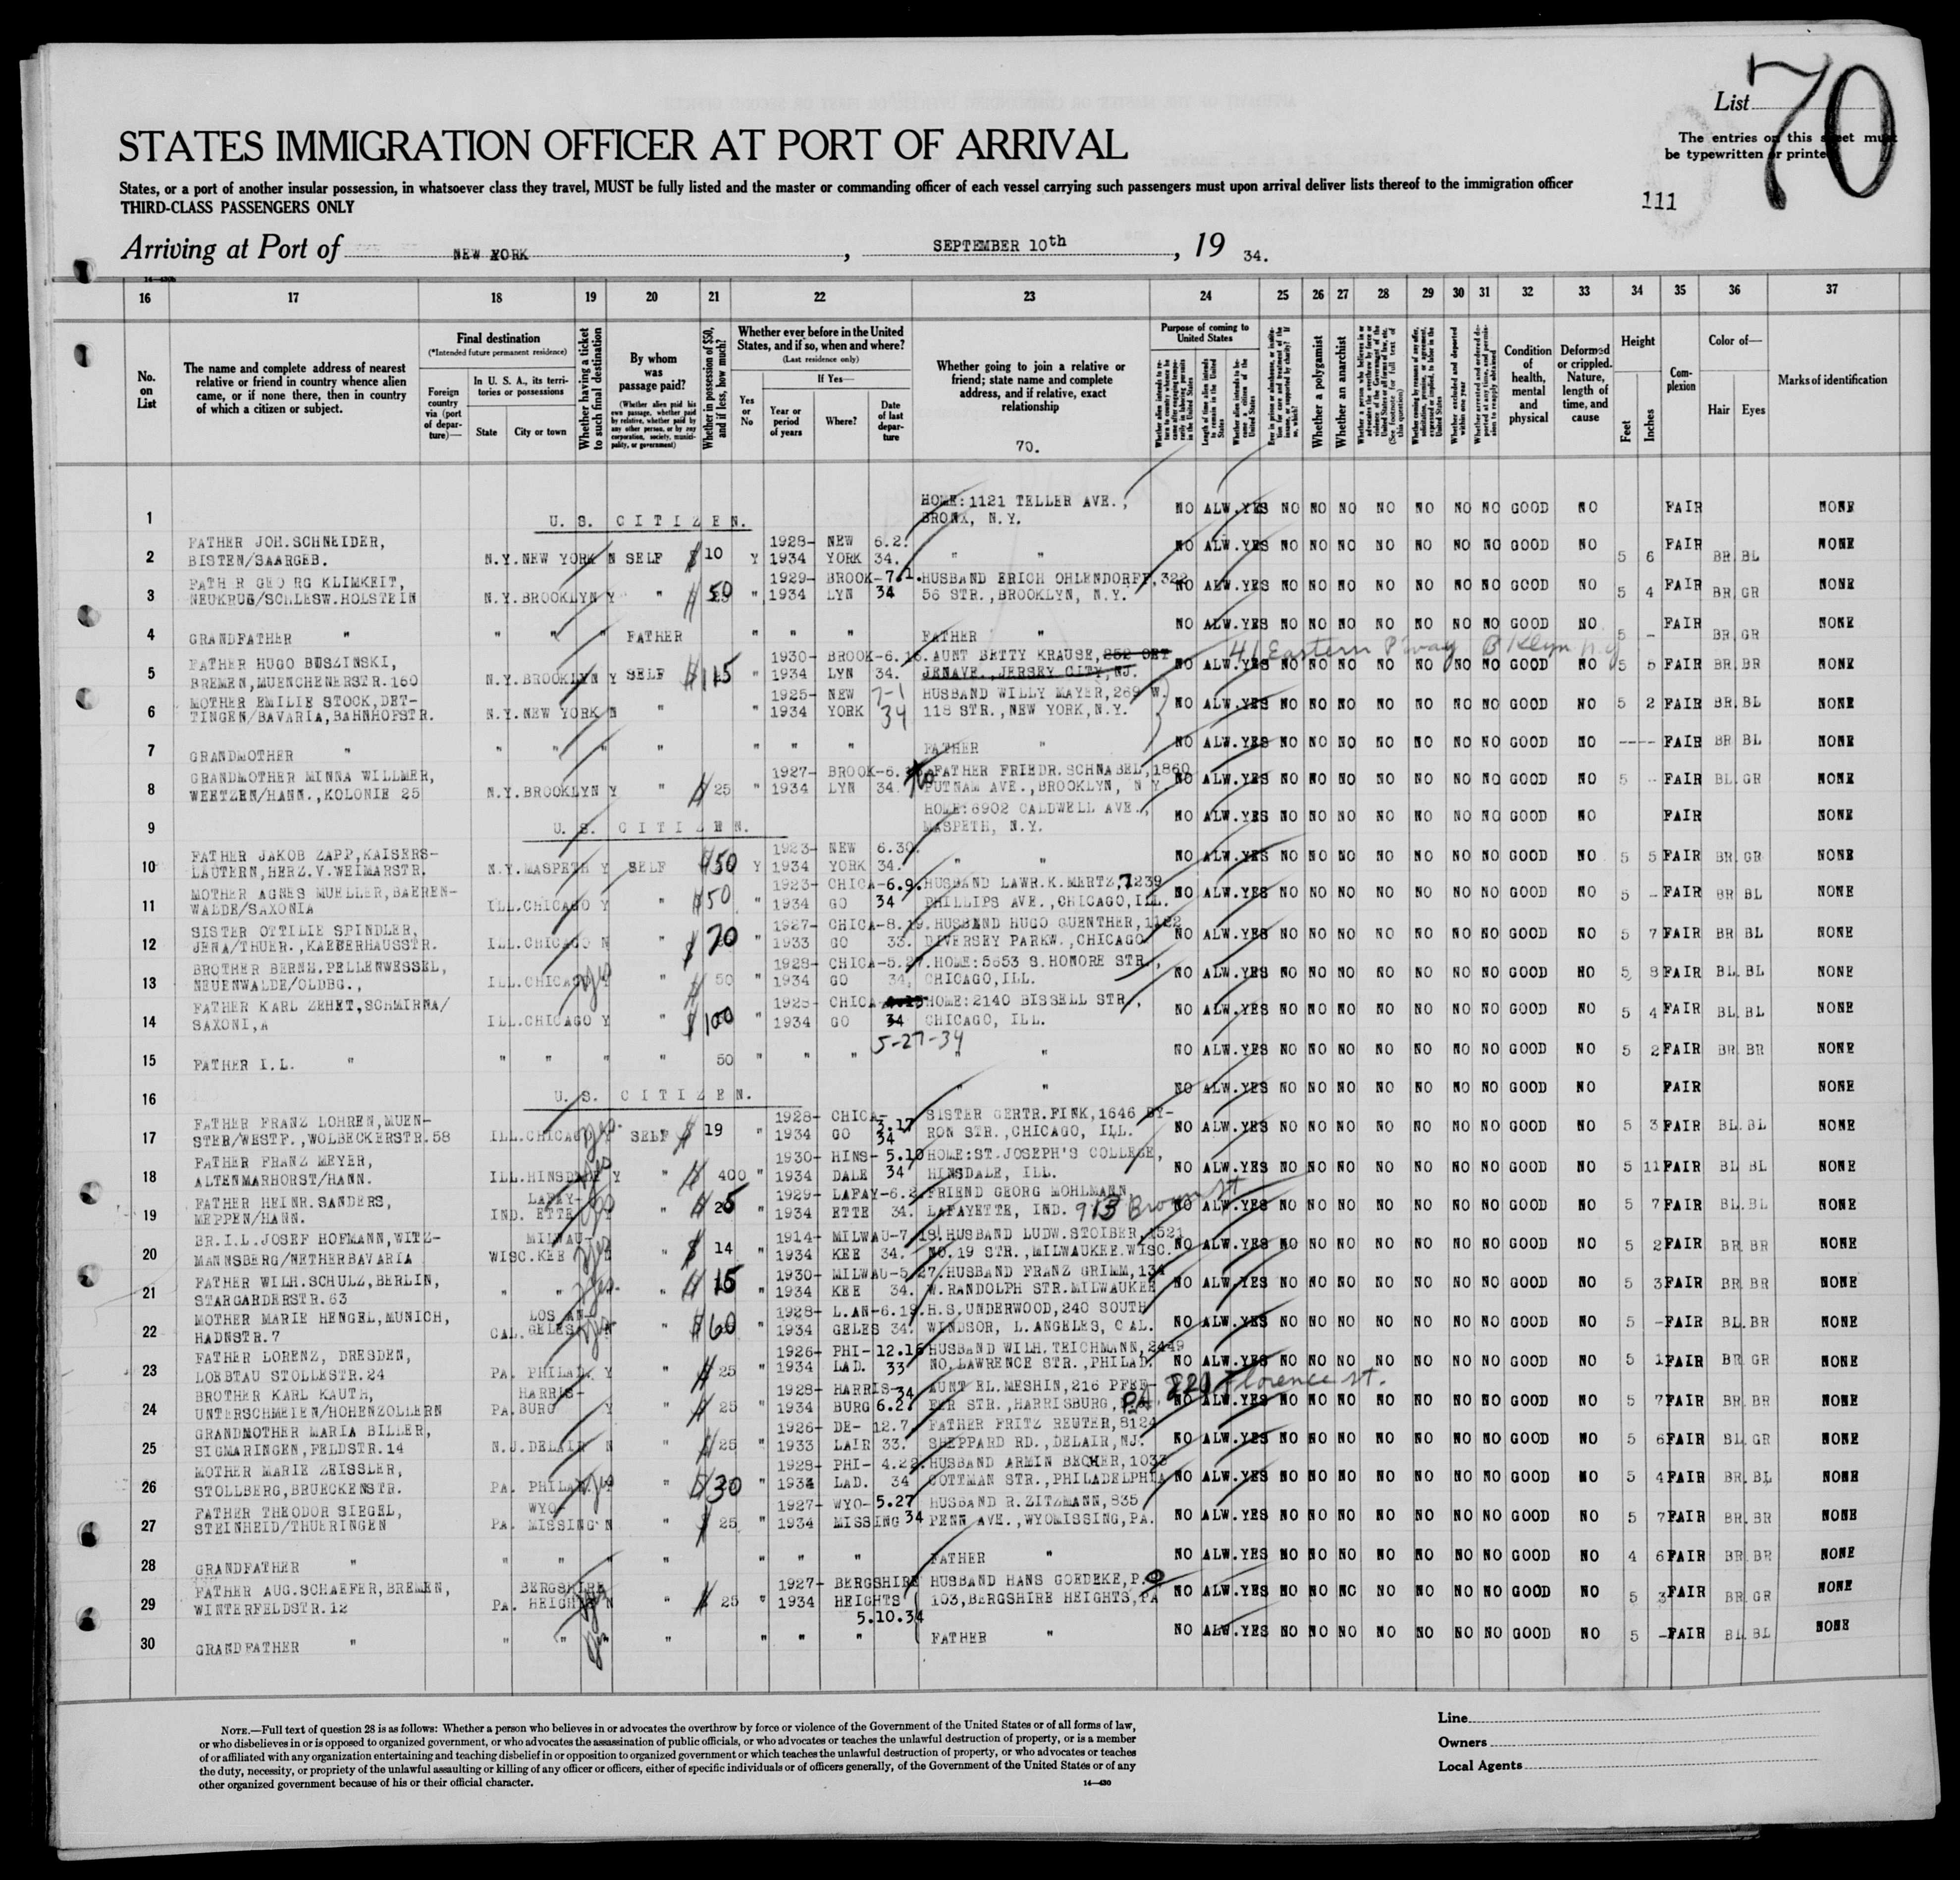 List 70
STATES IMMIGRATION OFFICER AT PORT OF ARRIVAL
The entries on this sheet must
be typewritten or printed
States, or a port of another insular possession, in whatsoever class they travel, MUST be fully listed and the master or commanding officer of each vessel carrying such passengers must upon arrival deliver lists thereof to the immigration officer
THIRD-CLASS PASSENGERS ONLY
111
Arriving at Port of NEW YORK, SEPTEMBER 10th, 19 34.
16 17 18 19 20 21 22 23 24 25 26 27 28 29 30 31 32 33 34 35 36 37
No. on List
The name and complete address of nearest relative or friend in country whence alien came, or if none there, then in country of which a citizen or subject.
Final destination
(*Intended future permanent residence)
Foreign country via (port of departure)—
In U. S. A., its territories or possessions
State City or town
Whether having a ticket to such final destination
By whom was passage paid?
(Whether alien paid his own passage, whether paid by relative, whether paid by any other person, or by any corporation, society, municipality, or government)
Whether in possession of $50, and if less, how much?
Whether ever before in the United States, and if so, when and where?
(Last residence only)
Yes or No
If Yes—
Year or period of years
Where?
Date of last departure
Whether going to join a relative or friend; state name and complete address, and if relative, exact relationship
70.
Purpose of coming to United States
Length of time alien intended to remain in the United States
Whether alien intends to become a citizen of the United States
Whether a polygamist
Whether an anarchist
Condition of health, mental and physical
Deformed or crippled. Nature, length of time, and cause
Height
Feet Inches
Complexion
Color of—
Hair Eyes
Marks of identification
1 U. S. CITIZEN. HOME:1121 TELLER AVE., BRONX, N.Y. NO ALW. YES NO NO NO NO NO NO NO GOOD NO FAIR NONE
2 FATHER JOH.SCHNEIDER, BISTEN/SAARGEB. N.Y. NEW YORK N SELF $10 Y 1928-1934 NEW YORK 6.2. 34. " " NO ALW. YES NO NO NO NO NO NO NO GOOD NO 5 6 FAIR BR. BL NONE
3 FATH R GEO RG KLIMKEIT, NEUKRUG/SCHLESW.HOLSTEIN N.Y. BROOKLYN Y " $50 " 1929-1934 BROOK-LYN 7.1. 34 HUSBAND ERICH OHLENDORFF, 322 56 STR., BROOKLYN, N.Y. NO ALW. YES NO NO NO NO NO NO NO GOOD NO 5 4 FAIR BR. GR NONE
4 GRANDFATHER " " " " FATHER " " " FATHER " NO ALW. YES NO NO NO NO NO NO NO GOOD NO 5 - FAIR BR. GR NONE
41 Eastern P'way Bklyn n.y
5 FATHER HUGO BUSZINSKI, BREMEN, MUENCHENERSTR.150 N.Y. BROOKLYN Y SELF $115 " 1930-1934 BROOK-LYN 6.16. 34. AUNT BETTY KRAUSE, JERSEY CITY, NJ. NO ALW. YES NO NO NO NO NO NO NO GOOD NO 5 5 FAIR BR. BR NONE
6 MOTHER EMILIE STOCK, DET-TINGEN/BAVARIA, BAHNHOFSTR. N.Y. NEW YORK N " " 1925-1934 NEW YORK 7-1 34 HUSBAND WILLY MAYER, 269 W. 118 STR., NEW YORK, N.Y. NO ALW. YES NO NO NO NO NO NO NO GOOD NO 5 2 FAIR BR. BL NONE
7 GRANDMOTHER " " " " " " " " FATHER " NO ALW. YES NO NO NO NO NO NO NO GOOD NO ---- FAIR BR BL NONE
8 GRANDMOTHER MINNA WILLMER, WEETZEN/HANN., KOLONIE 25 N.Y. BROOKLYN Y " $25 " 1927-1934 BROOK-LYN 34. FATHER FRIEDR. SCHNABEL, 1860 PUTNAM AVE., BROOKLYN, N Y. NO ALW. YES NO NO NO NO NO NO NO GOOD NO 5 - FAIR BL. GR NONE
9 U. S. CITIZEN. HOME:6902 CALDWELL AVE., MASPETH, N.Y. NO ALW. YES NO NO NO NO NO NO NO GOOD NO FAIR NONE
10 FATHER JAKOB ZAPP, KAISERS-LAUTERN, HERZ.V.WEIMARSTR. N.Y. MASPETH Y SELF $50 Y 1923-1934 NEW YORK 6.30. 34. " " NO ALW. YES NO NO NO NO NO NO NO GOOD NO 5 5 FAIR BR. GR NONE
11 MOTHER AGNES MUELLER, BAEREN-WALDE/SAXONIA ILL. CHICAGO Y " $50 " 1923-1934 CHICA-GO 6.9. 34 HUSBAND LAWR.K.MERTZ, 7239 PHILLIPS AVE., CHICAGO, ILL. NO ALW. YES NO NO NO NO NO NO NO GOOD NO 5 - FAIR BR BL NONE
12 SISTER OTTILIE SPINDLER, JENA/THUER., KAEBERHAUSSTR. ILL. CHICAGO N " $70 " 1927-1933 CHICA-GO 8.19. 33. HUSBAND HUGO GUENTHER, 1122 DIVERSEY PARKW., CHICAGO NO ALW. YES NO NO NO NO NO NO NO GOOD NO 5 7 FAIR BR BL NONE
13 BROTHER BERNH.PELLENWESSEL, NEUENWALDE/OLDBG., ILL. CHICAGO yes " $50 " 1928-1934 CHICA-GO 5.27. 34. HOME:5653 S.HONORE STR., CHICAGO, ILL. NO ALW. YES NO NO NO NO NO NO NO GOOD NO 5 8 FAIR BL. BL NONE
14 FATHER KARL ZEHET, SCHMIRNA/ SAXONI,A ILL. CHICAGO Y " $100 " 1925-1934 CHICA-GO 34 HOME:2140 BISSELL STR., CHICAGO, ILL. NO ALW. YES NO NO NO NO NO NO NO GOOD NO 5 4 FAIR BL. BL NONE
5-27-34
15 FATHER I.L. " " " " " 50 " " " " " NO ALW. YES NO NO NO NO NO NO NO GOOD NO 5 2 FAIR BR. BR NONE
16 U. S. CITIZEN. " " NO ALW. YES NO NO NO NO NO NO NO GOOD NO FAIR NONE
17 FATHER FRANZ LOHREN, MUEN-STER/WESTF., WOLBECKERSTR.58 ILL. CHICAGO yes SELF $19 " 1928-1934 CHICA-GO 3.17 34 SISTER GERTR.FINK, 1646 BY-RON STR., CHICAGO, ILL. NO ALW. YES NO NO NO NO NO NO NO GOOD NO 5 3 FAIR BL. BL NONE
18 FATHER FRANZ MEYER, ALTENMARHORST/HANN. ILL. HINSDALE Y yes " $400 " 1930-1934 HINS-DALE 5.10 34 HOME:ST.JOSEPH'S COLLEGE, HINSDALE, ILL. NO ALW. YES NO NO NO NO NO NO NO GOOD NO 5 11 FAIR BL BL NONE
19 FATHER HEINR.SANDERS, MEPPEN/HANN. IND. LAFAY-ETTE yes " $25 " 1929-1934 LAFAY-ETTE 6.2. 34. FRIEND GEORG MOHLMANN, LAFAYETTE, IND. 913 Brown St NO ALW. YES NO NO NO NO NO NO NO GOOD NO 5 7 FAIR BL. BL NONE
20 BR.I.L.JOSEF HOFMANN, WITZ-MANNSBERG/NETHERBAVARIA WISC. MILWAU-KEE yes " $14 " 1914-1934 MILWAU-KEE 7.19. 34. HUSBAND LUDW.STOIBER, 1521 NO.19 STR., MILWAUKEE.WISC. NO ALW. YES NO NO NO NO NO NO NO GOOD NO 5 2 FAIR BR. BR NONE
21 FATHER WILH.SCHULZ, BERLIN, STARGARDERSTR.63 " " yes " $15 " 1930-1934 MILWAU-KEE 5.27. 34. HUSBAND FRANZ GRIMM, 134 W.RANDOLPH STR.MILWAUKEE NO ALW. YES NO NO NO NO NO NO NO GOOD NO 5 3 FAIR BR BR NONE
22 MOTHER MARIE HENGEL, MUNICH, HADNSTR.7 CAL. LOS AN-GELES yes " $60 " 1928-1934 L.AN-GELES 6.19. 34. H.S.UNDERWOOD, 240 SOUTH WINDSOR, L.ANGELES, CAL. NO ALW. YES NO NO NO NO NO NO NO GOOD NO 5 - FAIR BL. BR NONE
23 FATHER LORENZ, DRESDEN, LOEBTAU STOLLESTR.24 PA. PHILAD. Y " $25 " 1926-1934 PHI-LAD. 12.16 33 HUSBAND WILH.TEICHMANN, 2449 NO.LAWRENCE STR., PHILAD. NO ALW. YES NO NO NO NO NO NO NO GOOD NO 5 1 FAIR BR GR NONE
221 Florence st.
24 BROTHER KARL KAUTH, UNTERSCHMEIEN/HOHENZOLLERN PA. HARRIS-BURG Y " $25 " 1928-1934 HARRIS-BURG 34 6.2. AUNT EL.MESHIN, 216 PFEF-FER STR., HARRISBURG, PA. NO ALW. YES NO NO NO NO NO NO NO GOOD NO 5 7 FAIR BR. BR NONE
25 GRANDMOTHER MARIA BILLER, SIGMARINGEN, FELDSTR.14 N.J. DELAIR N " $25 " 1926-1933 DE-LAIR 12.7. 33. FATHER FRITZ REUTER, 8124 SHEPPARD RD., DELAIR, NJ. NO ALW. YES NO NO NO NO NO NO NO GOOD NO 5 6 FAIR BL GR NONE
26 MOTHER MARIE ZEISSLER, STOLLBERG, BRUECKENSTR. PA. PHILAD. yes " $30 " 1928-1934 PHI-LAD. 4.22. 34 HUSBAND ARMIN BECHER, 1033 COTTMAN STR., PHILADELPHIA NO ALW. YES NO NO NO NO NO NO NO GOOD NO 5 4 FAIR BR. BL NONE
27 FATHER THEODOR SIEGEL, STEINHEID/THUERINGEN PA. WYO-MISSING N " $25 " 1927-1934 WYO-MISSING 5.27 34 HUSBAND R.ZITZMANN, 835 PENN AVE., WYOMISSING, PA. NO ALW. YES NO NO NO NO NO NO NO GOOD NO 5 7 FAIR BR. BR NONE
28 GRANDFATHER " " " " " " " " FATHER " NO ALW. YES NO NO NO NO NO NO NO GOOD NO 4 6 FAIR BR BR NONE
29 FATHER AUG.SCHAEFER, BREMEN, WINTERFELDSTR.12 PA. BERGSHIRE HEIGHTS N yes " $25 " 1927-1934 BERGSHIRE HEIGHTS 5.10.34 HUSBAND HANS GOEDEKE, P.O 103, BERGSHIRE HEIGHTS, PA NO ALW. YES NO NO NO NO NO NO NO GOOD NO 5 3 FAIR BR. GR NONE
30 GRANDFATHER " " " yes " " " " " FATHER " NO ALW. YES NO NO NO NO NO NO NO GOOD NO 5 - FAIR BL. BL NONE
NOTE.—Full text of question 28 is as follows: Whether a person who believes in or advocates the overthrow by force or violence of the Government of the United States or of all forms of law,
or who disbelieves in or is opposed to organized government, or who advocates the assassination of public officials, or who advocates or teaches the unlawful destruction of property, or is a member
of or affiliated with any organization entertaining and teaching disbelief in or opposition to organized government or which teaches the unlawful destruction of property, or who advocates or teaches
the duty, necessity, or propriety of the unlawful assaulting or killing of any officer or officers, either of specific individuals or of officers generally, of the Government of the United States or of any
other organized government because of his or their official character.
14—430
Line
Owners
Local Agents